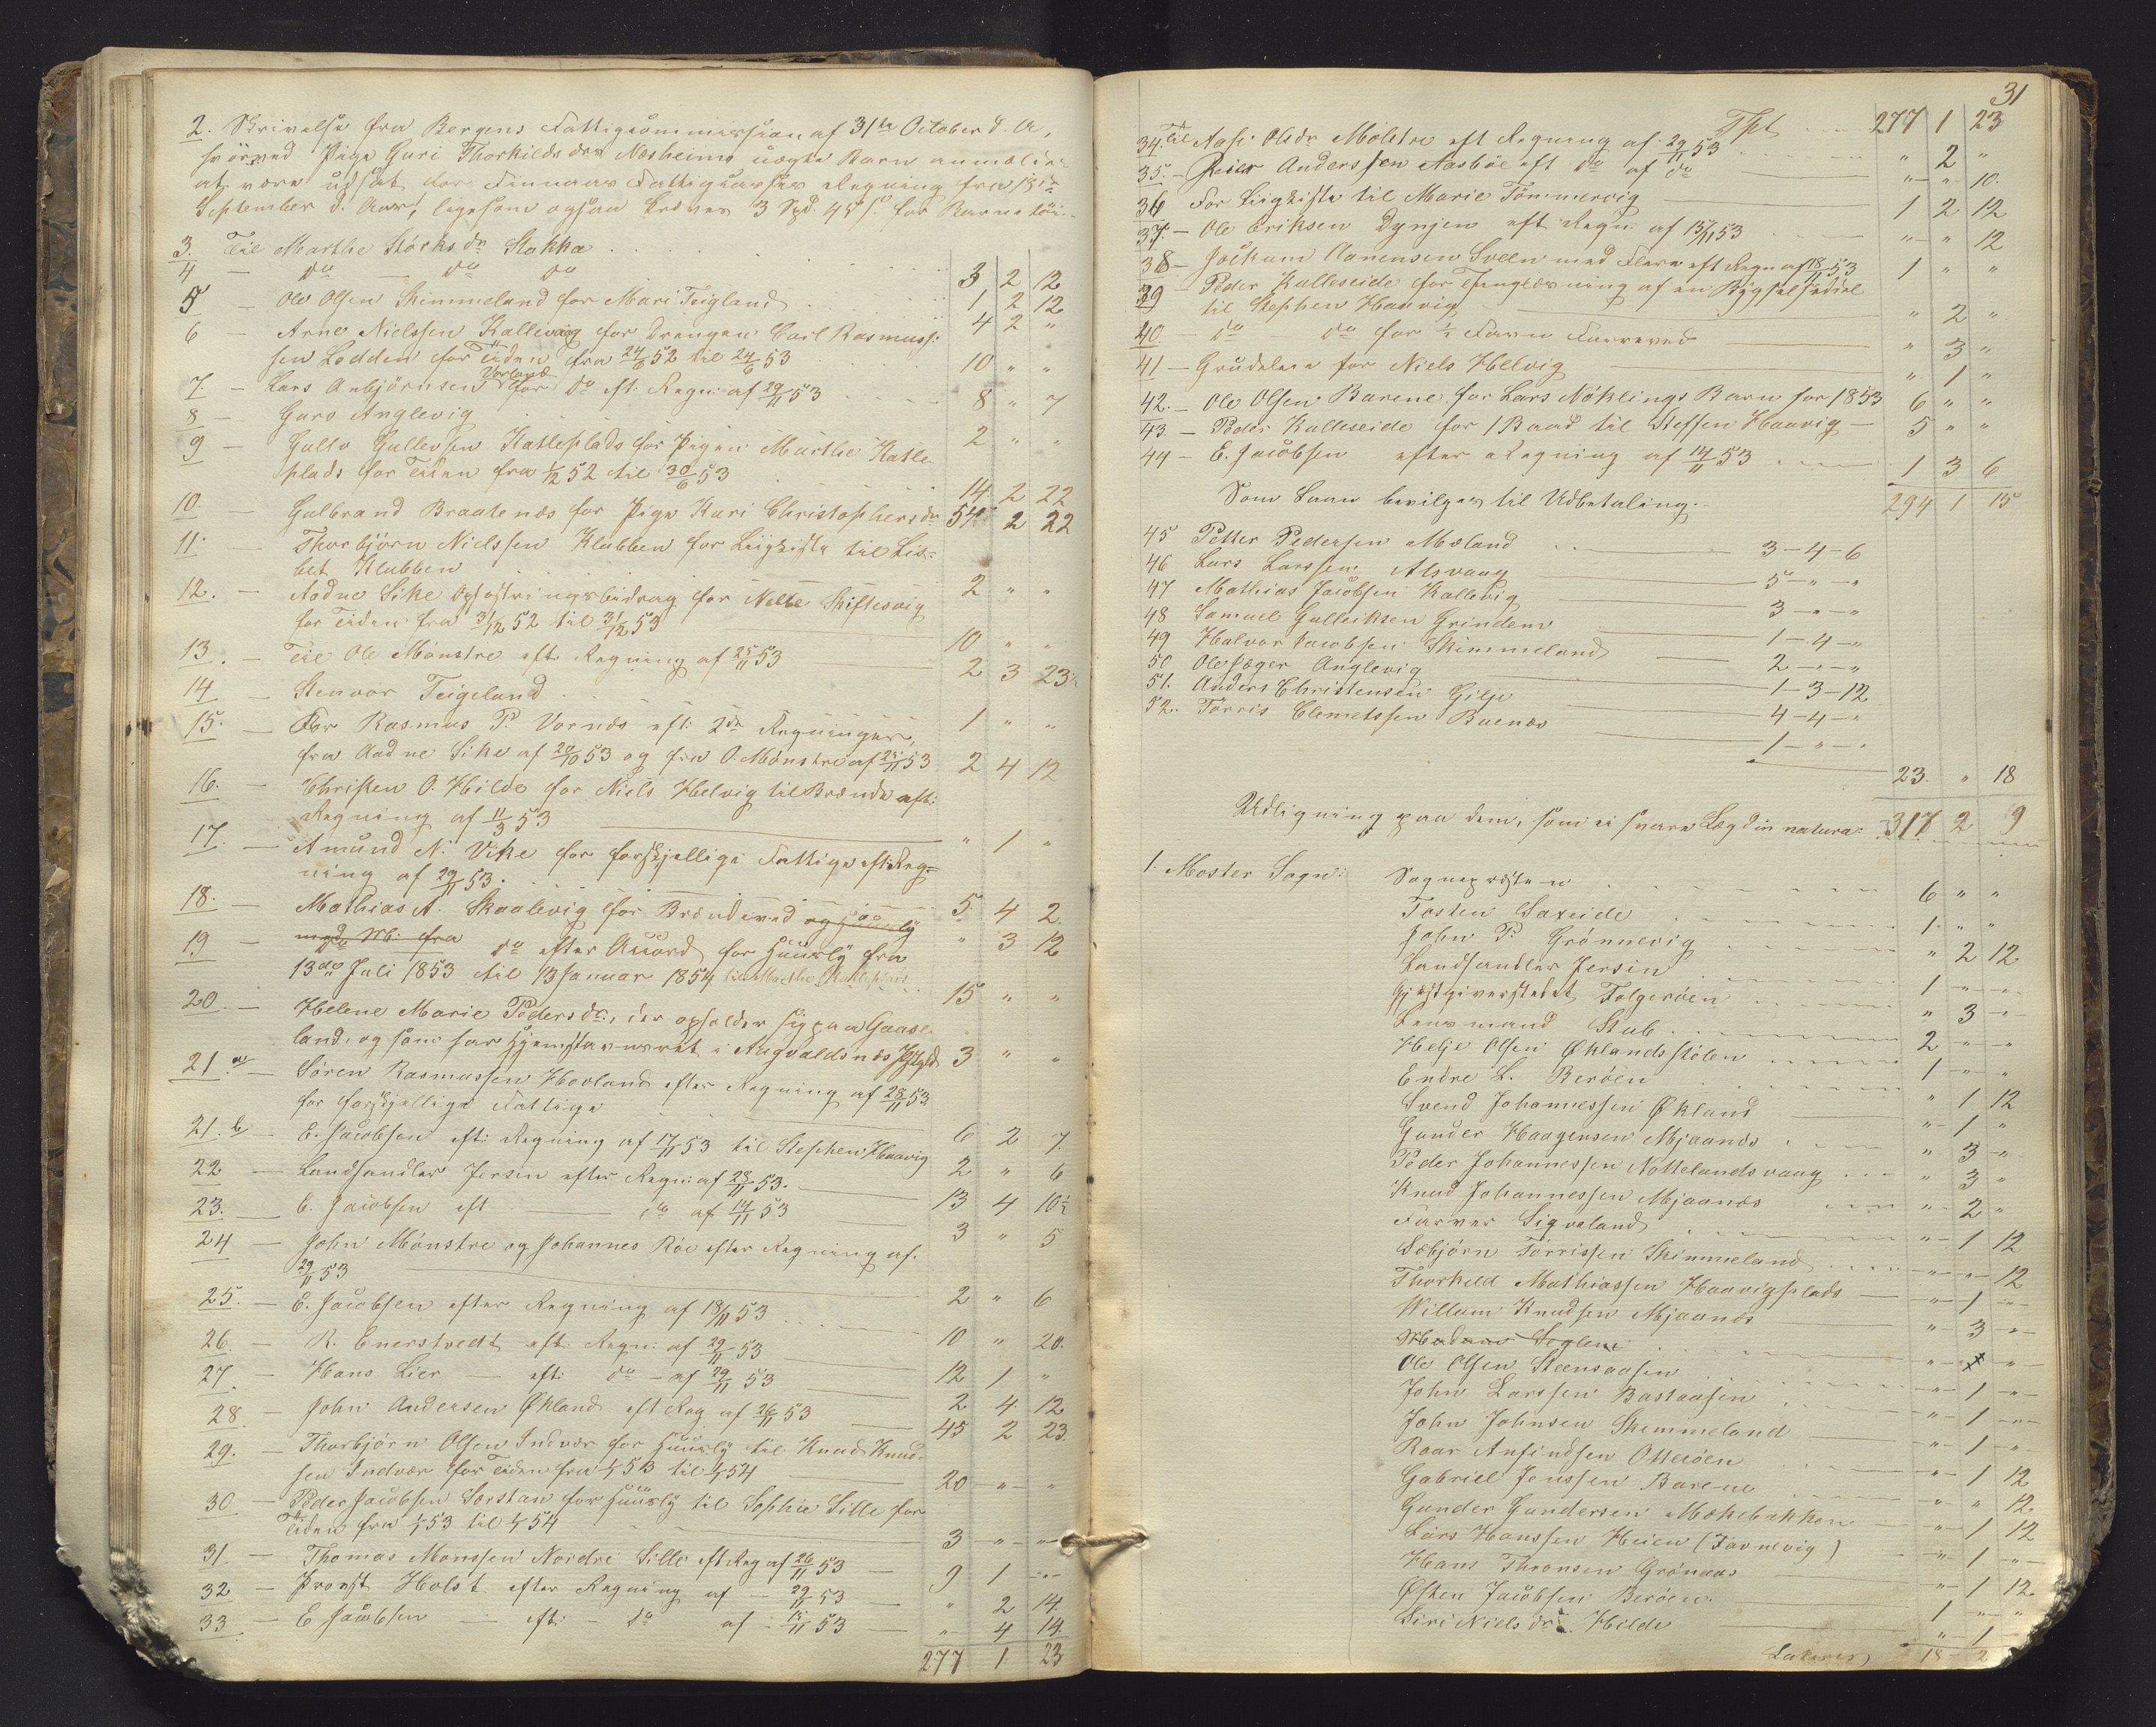 2. Skrivelse fra Bergens Fattigcommission af 31te October d. A,
hvorved Pige Guri Thorkildsdrs Næsheims uægte Barn anmeldes
at være udsat for Finnaas Fattigcasses Regning fra 18de
September d. Aar, ligesom ogsaa kræves 3 Spd. 45 s. for Barnetöi.
3. Til Marthe Störksdr Stokka 3 2 12
4 — do — do do 1 2 12
5 — Ole Olsen Skimmeland for Mari Teigland 4 2 "
6 — Arne Nielssen Kallevaag for Drengen Carl Rasmus-
sen Lodden for Tiden fra 24/6 52 til 24/6 53 10 " "
7. — Lars Anbjörnsen Vorland for do eft. Regn: af 29/11 53 8 " 7
8 — Guro Anglevig 2 " "
9 — Gullo Gullevsen Katleplads for Pigen Marthe Katle-
plads for Tiden fra 1/12 52 til 30/6 53 14 2 22
10. — Gulbrand Braatenæs for Pige Kari Christophersdr 54 2 22
11. — Thorbjörn Nielssen Klubben for Liigkiste til Lis-
bet Klubben 2 " "
12. — Aadne Eike Opfostringsbidrag for Nille Skiftesvig
for Tiden fra 31/12 52 til 31/12 53 10 " "
13. — Til Ole Mönstre eft. Regning af 25/11 53 2 3 23
14 — Stenvor Teigeland 1 " "
15. — For Rasmus P. Vornæs eft: 2de Regninger,
fra Aadne Eike af 20/10 53 og fra O. Mönstre af 25/11 53 2 4 12
16. — Christen O. Hilde for Niels Helvig til Brænde eft:
Regning af 11/3 53 " 1 "
17. — Amund N. Vike for forskjellige Fattige eft: Reg-
ning af 29/11 53. 5 4 2
18. — Mathias A. Skaalevig for Brændeved og Huusly " 3 12
19 — do efter Accord for Huusly fra
13de Juli 1853 til 13 Januar 1854 til Marthe Katleplads 15 " "
20. — Helene Marie Pedersdr, der opholder sig paa Gaase-
land, og som har Hjemstavnsret i Augvaldsnæs Præstegjeld 3 " "
21 a/ — Sören Rasmussen Hovland efter Regning af 28/11 53
for forskjellige Fattige 6 2 7
21. b/ — E. Jacobsen eft: Regning af 17/11 53 til Stephen Haavig 2 " 6
22 — Landhandler Jersin efter Regn: af 28/11 53. 13 4 10½
23. — E. Jacobsen eft do af 14/11 53 3 " 5
24 — John Mönstre og Johannes Röe efter Regning af
29/11 53 2 " 6
25. — E. Jacobsen efter Regning af 18/11 53 10 " 20.
26. — R. Enerstvedt eft. Regn: af 29/11 53 12 1 "
27 — Hans Lier — eft: do — af 29/11 53 2 4 12
28. — John Andersen Økland eft Reg af 26/11 53 45 2 23
29. — Thorbjörn Olsen Indvær for Huusly til Knud Knud-
sen Indvær for Tiden fra 1/1 53 til 1/1 54 20 " "
30 — Peder Jacobsen Sorstan for Huusly til Sophie Lille for
Tiden fra 1/1 53 til 1/1 54 3 " "
31. — Thomas Monssen Nordre Lille eft Reg af 26/11 53 9 1 "
32 — Provst Holst efter Regning af 29/11 53 " 2 14
33 — E Jacobsen — eft: — do af 15/11 53 " 4 14.
277 1 23
31
Tspt 277 1 23
34. Til Aase Olsdr Mölstre eft Regning af 29/11 53 " 2 "
35. — Peder Anderssen Aasböe eft do af do " " 10.
36 For Liigkiste til Marie Tömmervig 1 2 12
37 — Ole Eriksen Dynjen eft Regn: af 15/11 53 " " 12
38 — Jockum Aanensen Sveen med Flere eft Regn af 18/11 53 1 " "
39 — Peder Kalleseide for Thinglæsning af en Bygselseddel
til Stephen Haavig " 2 "
40. — do — do for ½ Favn Furuved " 3 "
41 — Grudeleie for Niels Helvig " 1 "
42. — Ole Olsen Barene for Lars Nöklings Barn for 1853 6 " "
43. — Peder Kalleseide for 1 Baad til Steffen Haavig — 5 " "
44 — E. Jacobsen efter Regning af 14/11 53 1 3 6
294 1 15
Som Laan bevilges til Udbetaling.
45 Petter Pedersen Mæland 3 - 4 - 6
46 Lars Larssen Alsvaag 5 - " - "
47 Mathias Jacobsen Kallevig 3 - " - "
48 Samuel Gulleiksen Grindem 1 - 4 - "
49 Halvor Jacobsen Skimmeland 2 - " - "
50 Ole Jæger Anglevig 1 - 3 - 12
51. Anders Christensen Gilje 4 - 4 - "
52. Törris Clemetssen Buenæs 1 - " - "
23. " 18
Udligning paa dem, som ei svare Lægd in natura: 317 2 9
1. Moster Sogn: Sognepresten 6 " "
Tosten Saxeide 1 " "
John P. Grönnevig " 2 12
Landhandler Jersin 1 " "
Gjæstgiverstedet Folgeröen " 3 "
Lensmand Stub 2 " "
Helje Olsen Øklandsstölen 1 " "
Endre L. Beröen " 1 12
Svend Johannessen Økland " 1 "
Gunder Haagensen Mjaanæs " 3 "
Peder Johannessen Nottelandsvaag " 3 "
Knud Johannessen Mjaanæs " 2 "
Farver Sigveland " 1 12
Sæbjörn Törrissen Skimmeland " " 12
Thorkild Mathiassen Haavigplads " 1 "
Willum Knudsen Mjaanæs " 3 "
Madame Seglem
Ole Olsen Steensaasen " 1 "
John Larssen Bastaasen " 1 "
John Johnsen Skimmeland " 1 "
Roar Anfindsen Otteröen " 1 12
Gabriel Jenssen Barene " " 12
Gunder Gundersen Mækebakken " 1 12
Lars Hanssen Heien (Favnevig) " 1 "
Hans Thronsen Grönnaas " 1 12
Østen Jacobsen Beröen 1 " "
Siri Nielsdr Hilde " 1
Lateris 18 2